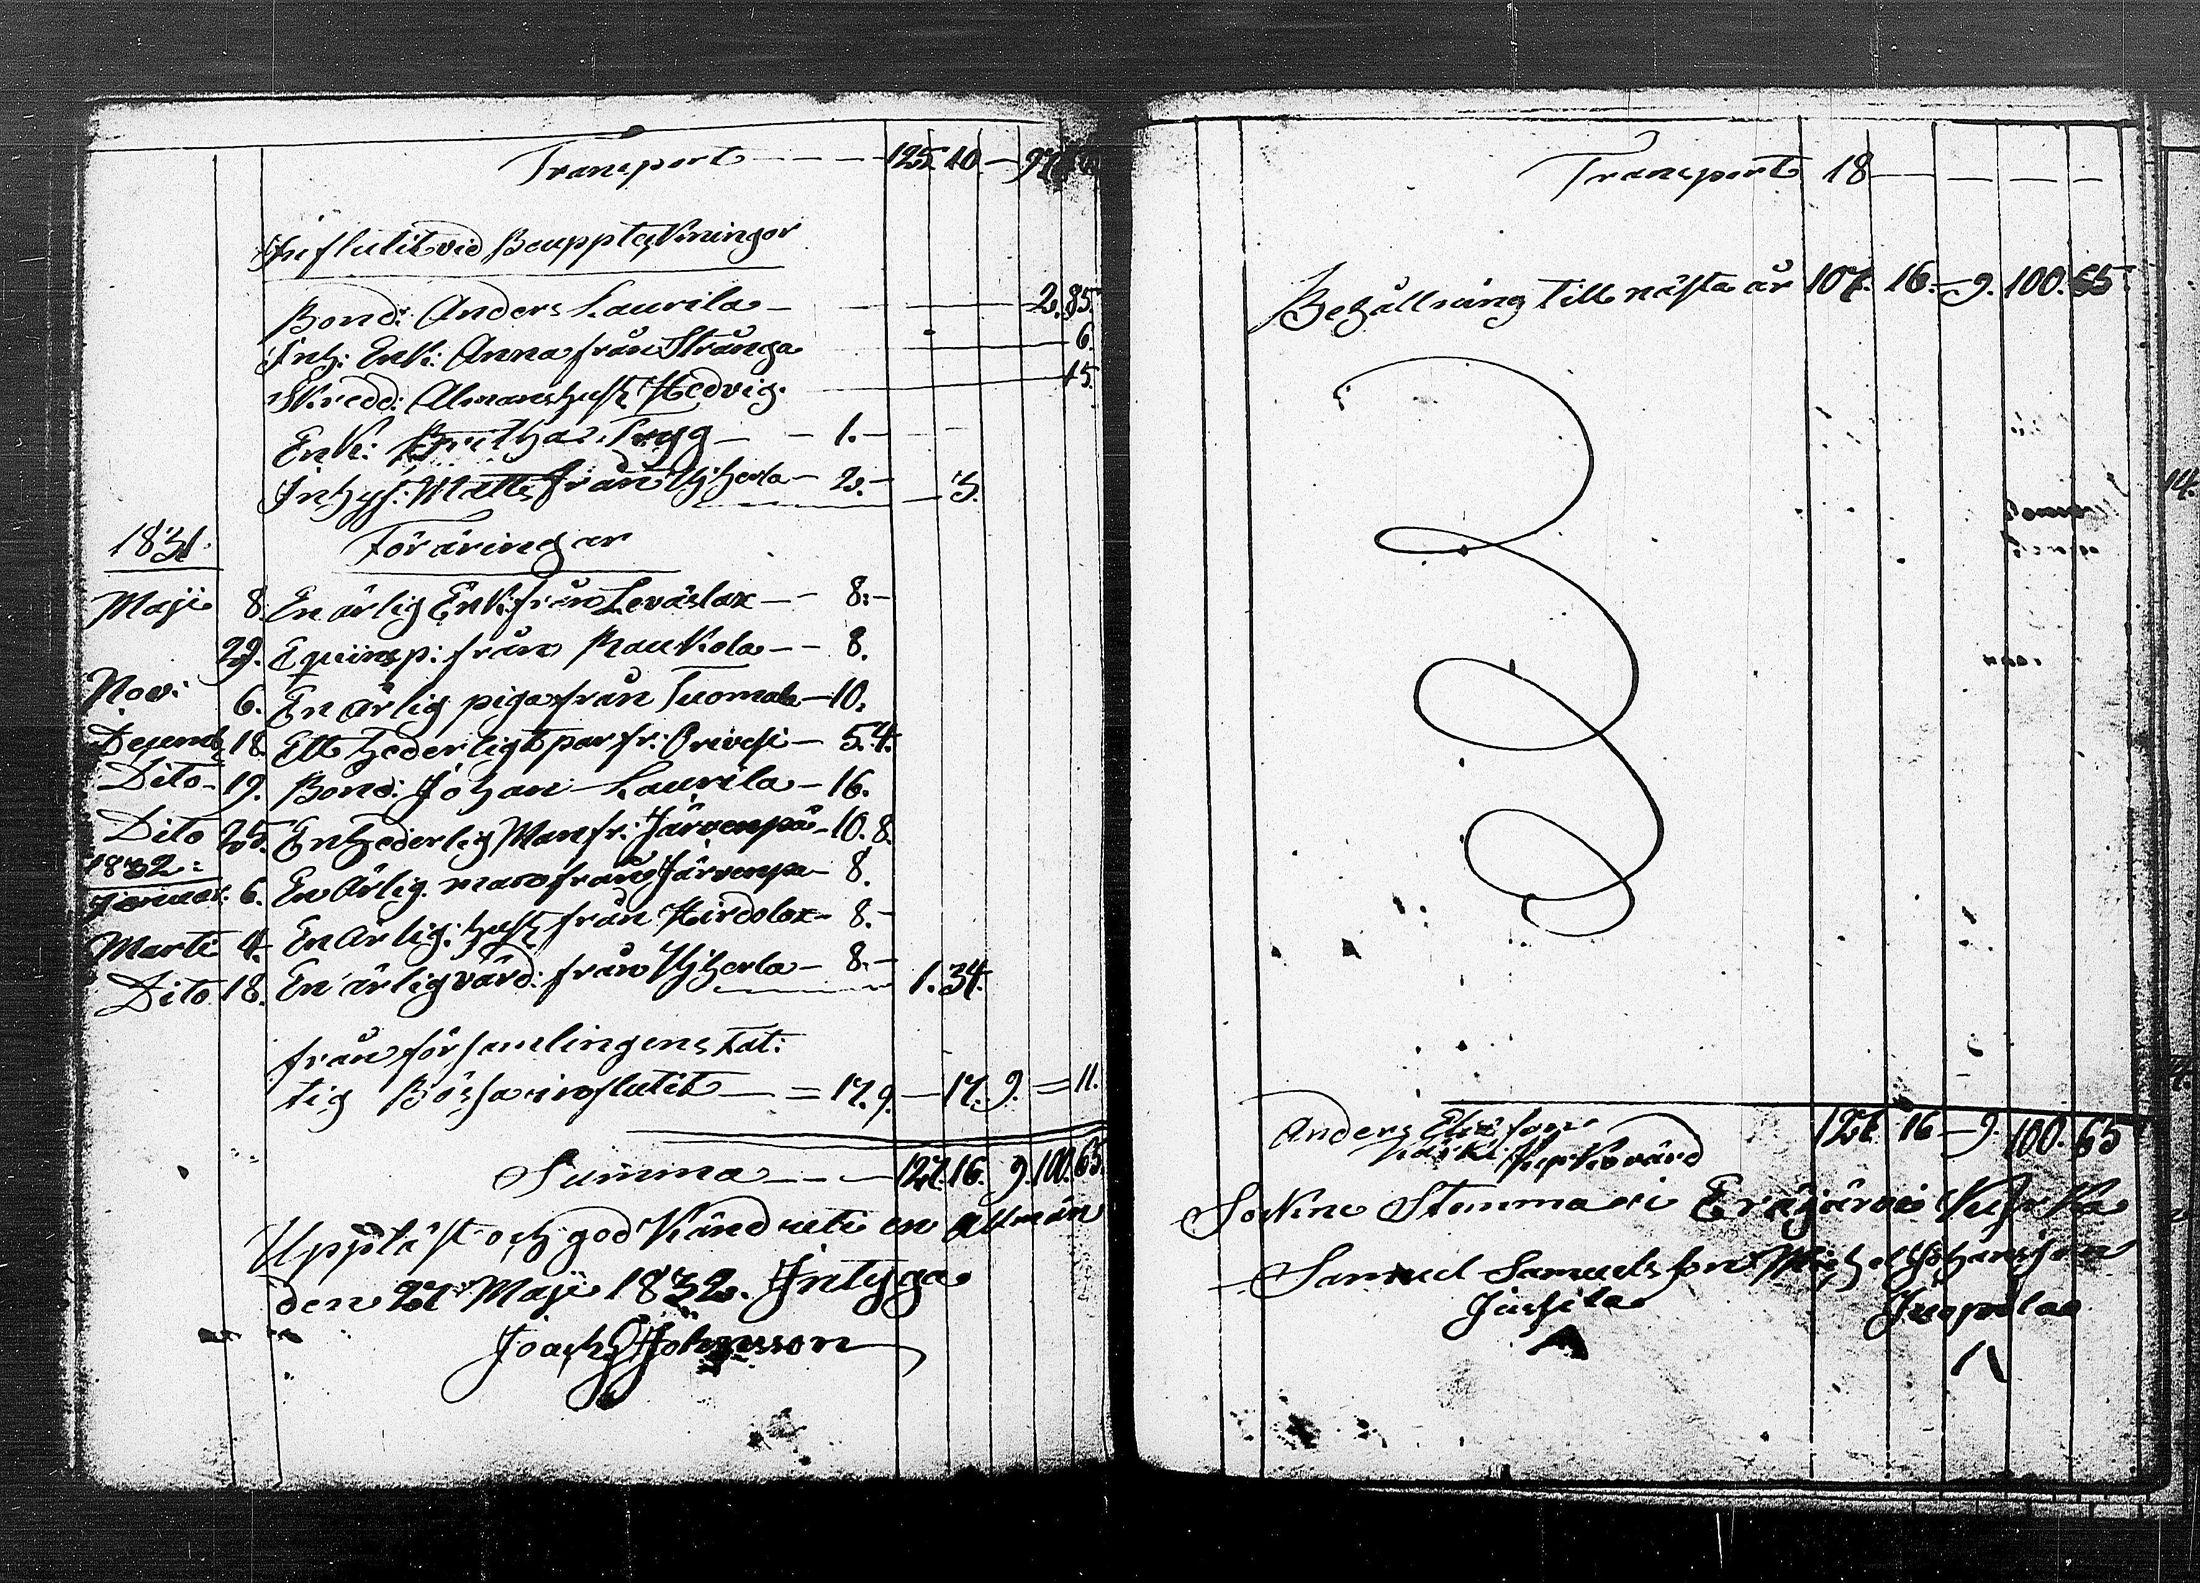 Transport — — — 125. 10. — 97.
Influtit vid Bouppteckningor
Bond: Anders Laurila — — — 2. 85.
Inh: Enk: Anna från Stränga — 6.
Skredd: Almans hust Hedvig. — 15.
Enk: Britha Trygg — — 1. —
Inhys: Matts från Uiherla — 2. — — 3.
1831. Föräringar
Maji 8. En ärlig Enk. från Leväslax — — 8. —
29. Equinsp: från Raukola — — 8.
Nov: 6. En ärlig piga från Tuomala — 10.
Desemb 18. Ett hederligt par fr: Orivesi — 5. 4.
Dito — 19. Bond: Johan Laurila — 16.
Dito 25. En hederlig Man fr: Järvenpä — 10. 8.
1832:
Januar: 6. En ärlig man från Järvenpä — 8.
Marti 4. En ärlig: hust från Hirdolax — 8. —
Dito 18. En ärlig värd: från Uiherla — 8. — 1. 34.
från församlingens Fat:
tig Bössa influtit — = 17. 9. — 17. 9. = 11.
Summa — — — 127. 16. 9. 100. 65.
Uppläst och god Känd uti en allmän
den 27 Maji 1832. Intyga
Joach Johansson
Transport 18 — — — — —
Behållning till nästa år 107. 16. — 9. 100. 65
127 16 — 9. 100. 65
Anders
Kyrkovärd
Sockne Stemma i Eräjärvi Kyrka
Samuel Samuelsson Michel Johansson
Jussila Juopola